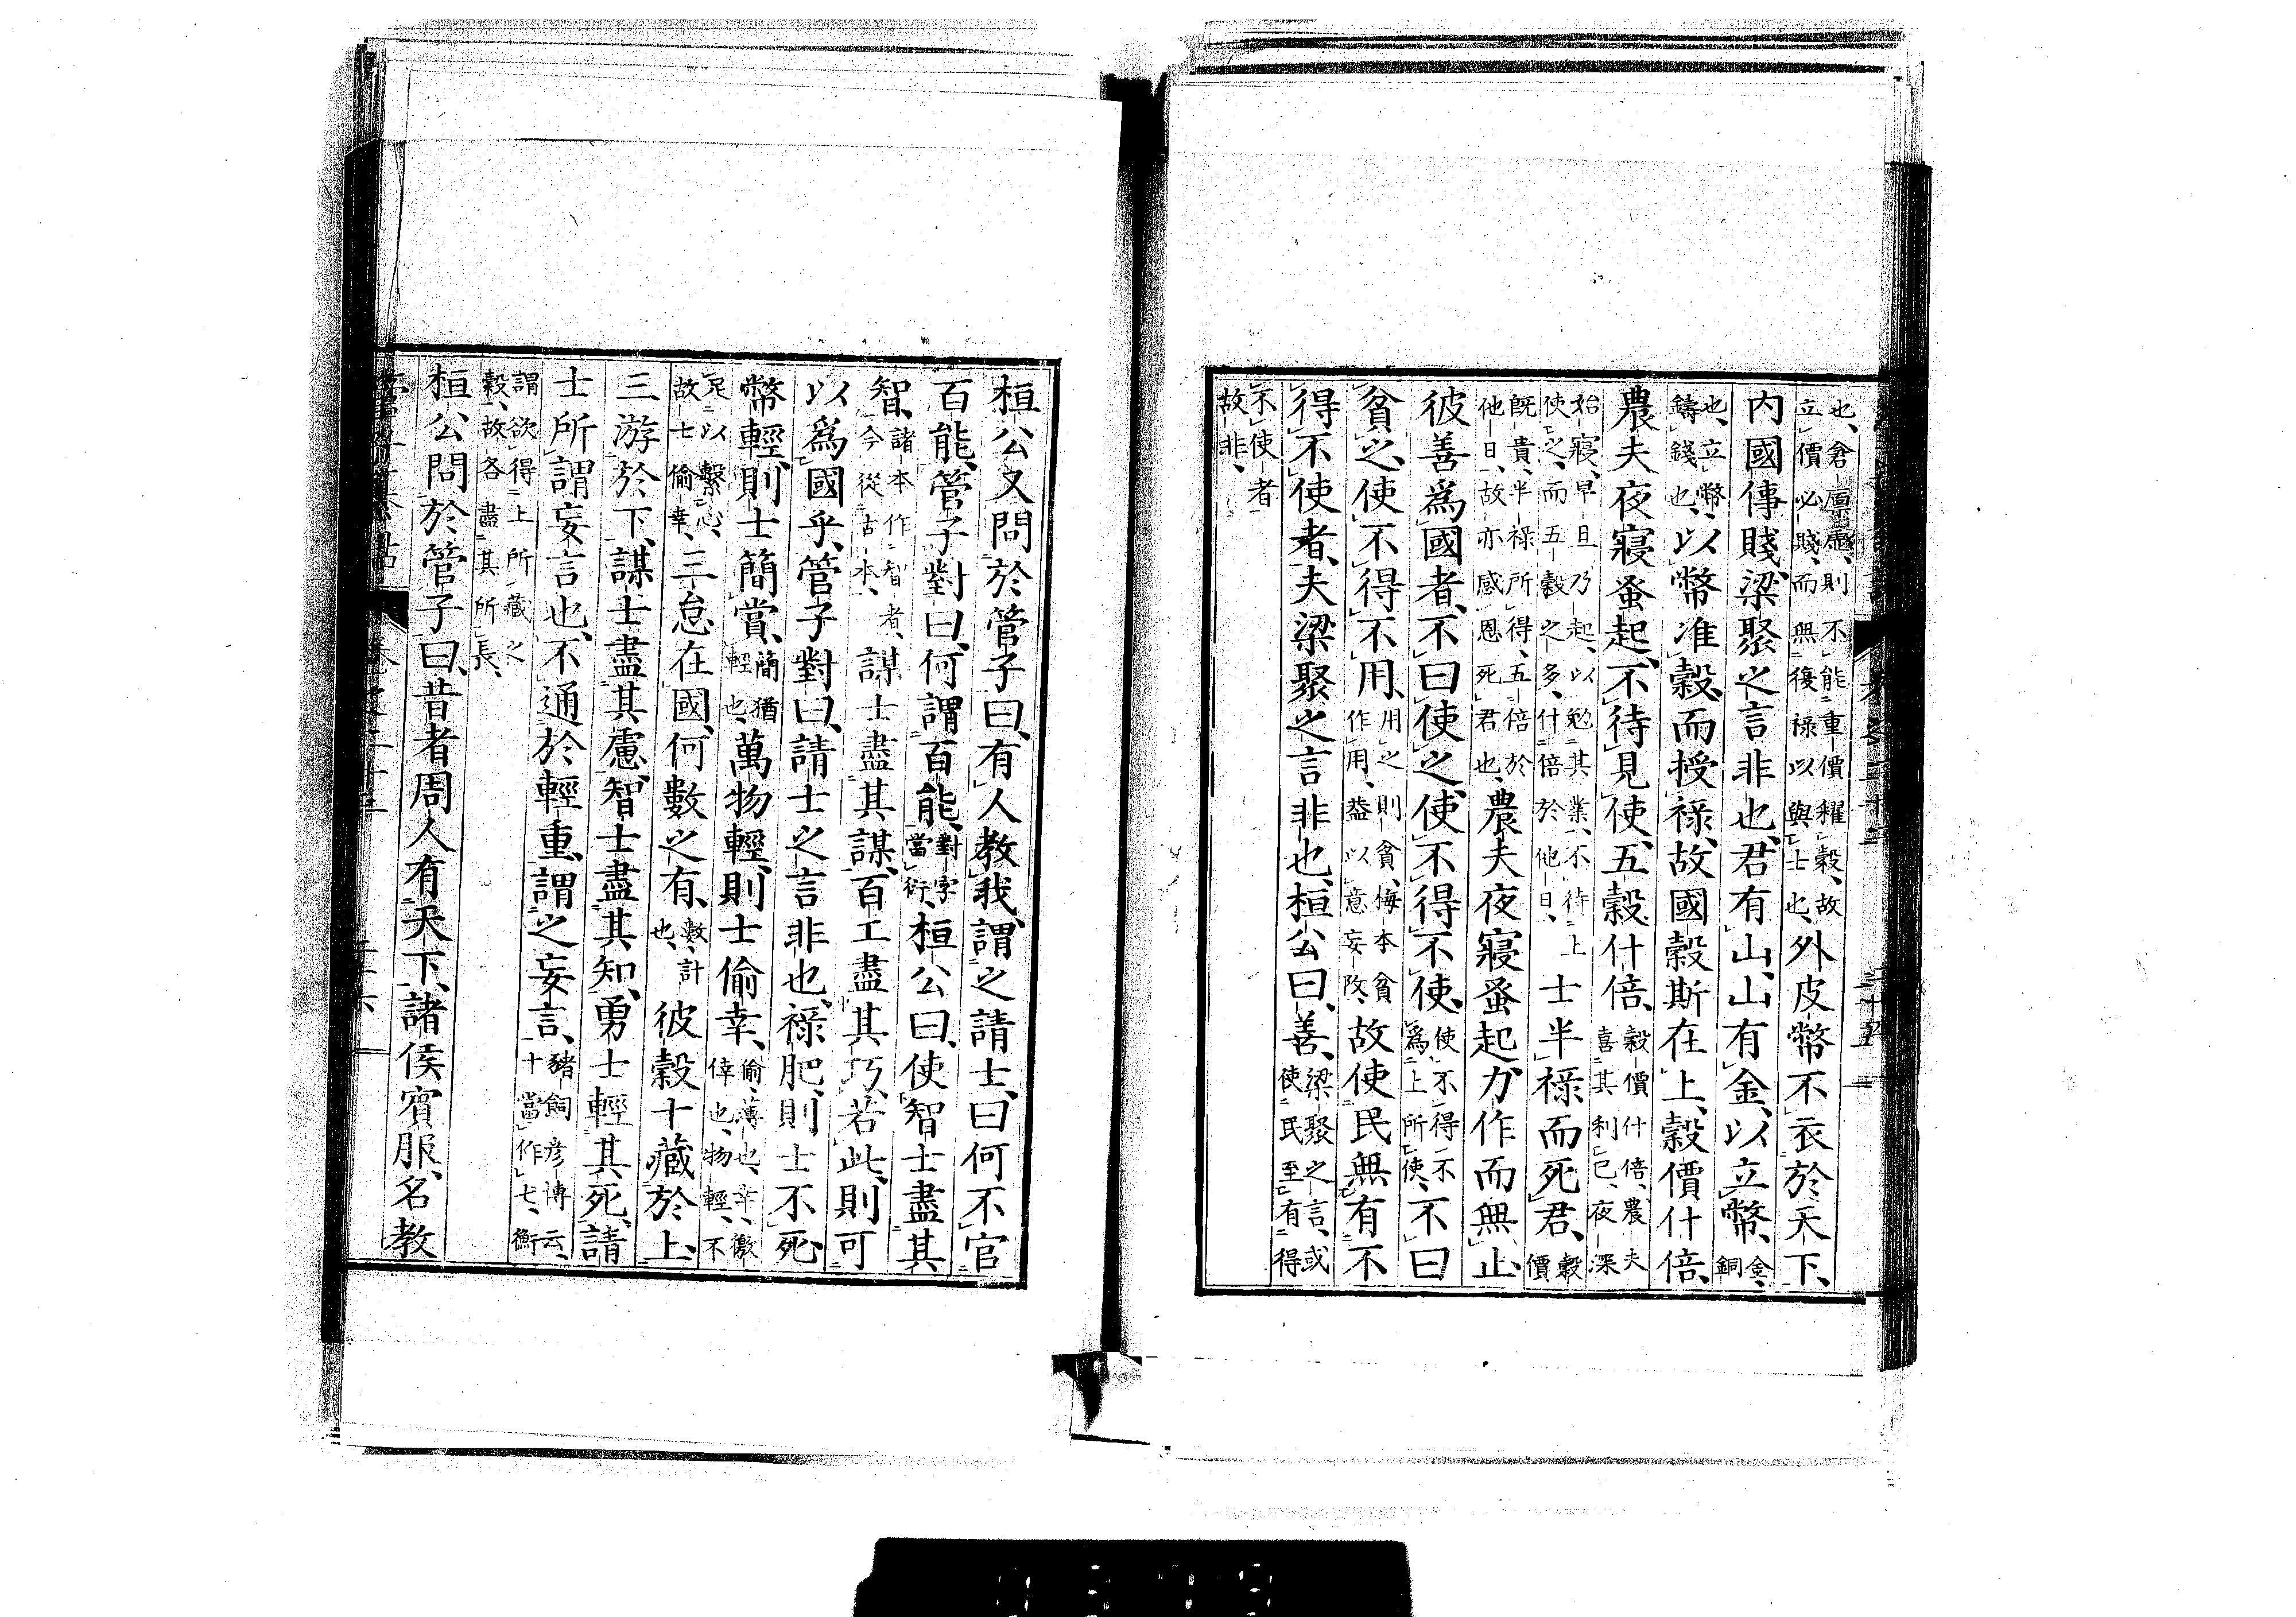 也、倉廩虛、則不能重價糴穀、故
立價必賤、而無復祿以與士也、外皮幣不衣於天下、
內國傳賤、梁聚之言非也、君有山、山有金、以立幣、金、銅
也、立幣、
鑄錢也、以幣准穀、而授祿、故國穀斯在上、穀價什倍、
農夫夜寢蚤起、不待見使、五穀什倍、穀價什倍、農夫
喜其利己、夜深
始寢、早旦乃起、以勉其業、不待上
使之、而五穀之多、什倍於他日、士半祿而死君、穀價
既貴、半祿所得、五倍於
他日、故亦感恩死君也、農夫夜寢蚤起力作而無止、
彼善爲國者、不曰使之、使不得不使、使不得不
爲上所使、不曰
貧之、使不得不用、用之則貧、梅本貧
作用、蓋以意妄改、故使民無有不
得不使者、夫梁聚之言非也、桓公曰、善、梁聚之言、或
使民至有得
不使者
故非、
桓公又問於管子曰、有人教我、謂之請士、曰何不官
百能、管子對曰、何謂百能、對字
當衍、桓公曰、使智士盡其
智、諸本作智者、
今從古本、謀士盡其謀、百工盡其巧、若此、則可
以爲國乎、管子對曰、請士之言非也、祿肥、則士不死、
幣輕、則士簡賞、簡猶
輕也、萬物輕、則士偷幸、偷、薄也、幸、徼
倖也、物輕、不
足以繫心、
故士偷幸、三怠在國、何數之有、數、計
也、彼穀十藏於上、
三游於下、謀士盡其慮、智士盡其知、勇士輕其死、請
士所謂妄言也、不通於輕重、謂之妄言、豬飼彥博云、
十當作七、衡
謂欲得上所藏之
穀、故各盡其所長、
桓公問於管子曰、昔者周人有天下、諸侯賓服、名教